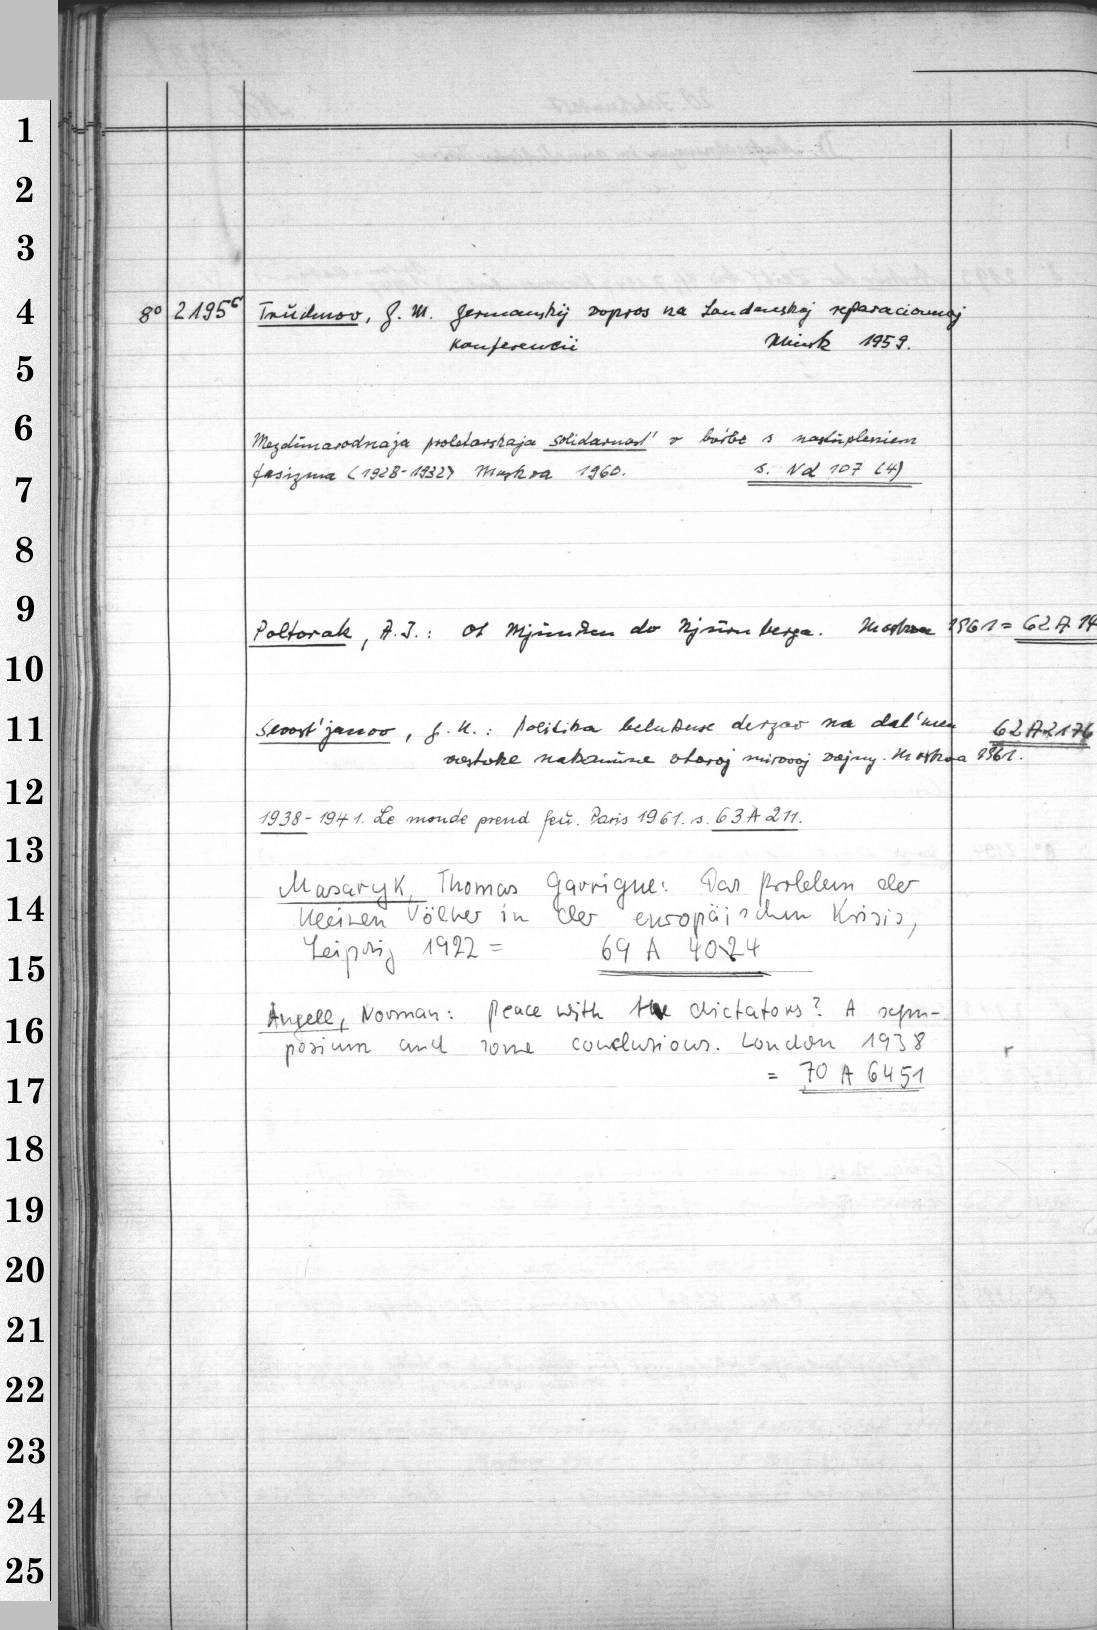 1
2
3
4
5
6
7
8
9
10
11
12
13
14
15
16
17
18
19
20
21
22
23
24
25
8° 2195c Truchnov, G. M. Germanskij vopros na Londonskoj reparacionnoj
Konferencii Minsk 1959.
Mezdunarodnaja proletarskaja solidarnost' v bor'be s nastupleniem
fasizma (1928-1932) Moskva 1960. s. Nd 107 (4)
Poltorak, A. I.: Ot Mjunchen do Njurnberga. Moskva 1961 = 62 A 14
Sevost'janov, G. N.: Politika derzav na dal'nem 62 A 2176
vostoke nakanune vtoroj mirovoj vojny. Moskva 1961.
1938-1941. Le monde prend feu. Paris 1961. s. 63 A 211.
Masaryk, Thomas Garrigue: Das Problem der
kleinen Völker in der europäischen Krisis,
Leipzig 1922 = 69 A 4024
Angell, Norman: Peace with the dictators? A sym-
posium and some conclusions. London 1938
= 70 A 6451